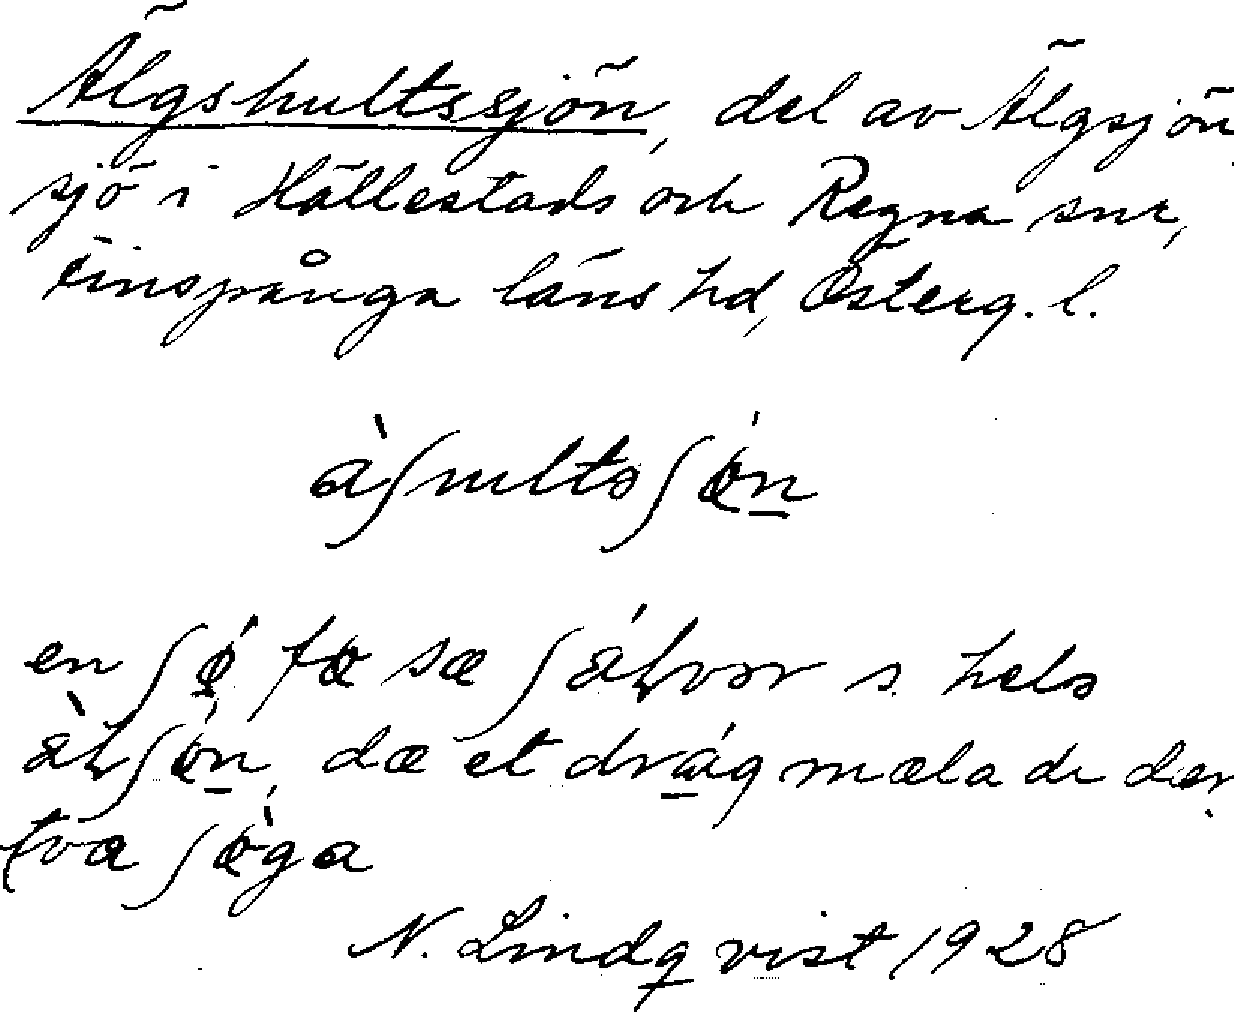 Älgshultssjön, del av Älgsjön
sjö i Hällestads och Regna snr,
Finspånga läns hd, Österg. l.
àʃultsʃøn
en ʃǿ fø sæ s. hels
ʃøn, dæ et dråg mæla de dær
tva ʃøga
N. Lindqvist 1928